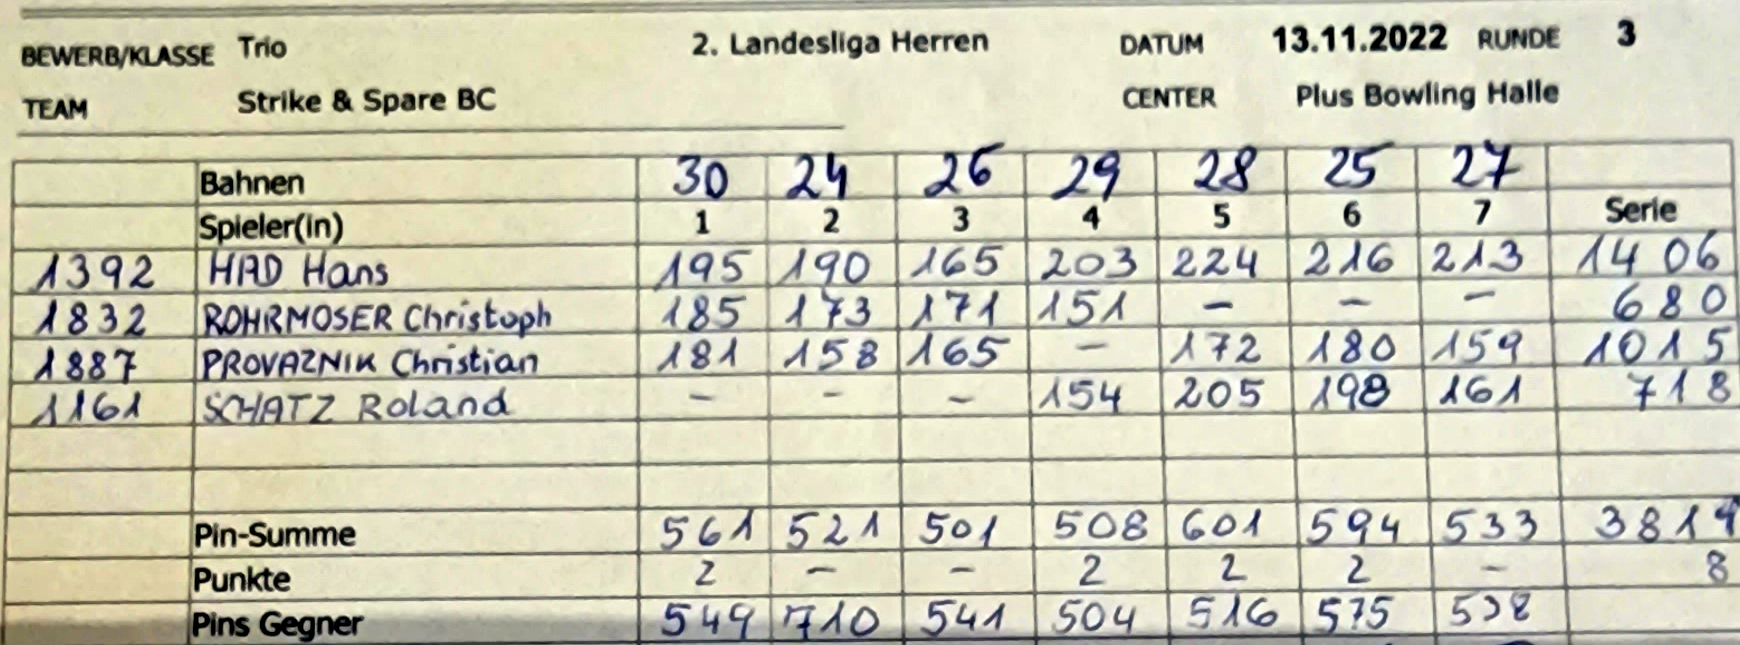 BEWERB/KLASSE Trio 2. Landesliga Herren DATUM 13.11.2022 RUNDE 3
TEAM Strike & Spare BC CENTER Plus Bowling Halle
Bahnen 30 24 26 29 28 25 27
Spieler(in) 1 2 3 4 5 6 7 Serie
1392 HAD Hans 195 190 165 203 224 216 213 1406
1832 ROHRMOSER Christoph 185 173 171 151 - - - 680
1887 PROVAZNIK Christian 181 158 165 - 172 180 159 1015
1161 SCHATZ Roland - - - 154 205 198 161 718
Pin-Summe 561 521 501 508 601 594 533 3819
Punkte 2 - - 2 2 2 - 8
Pins Gegner 549 710 541 504 516 575 538